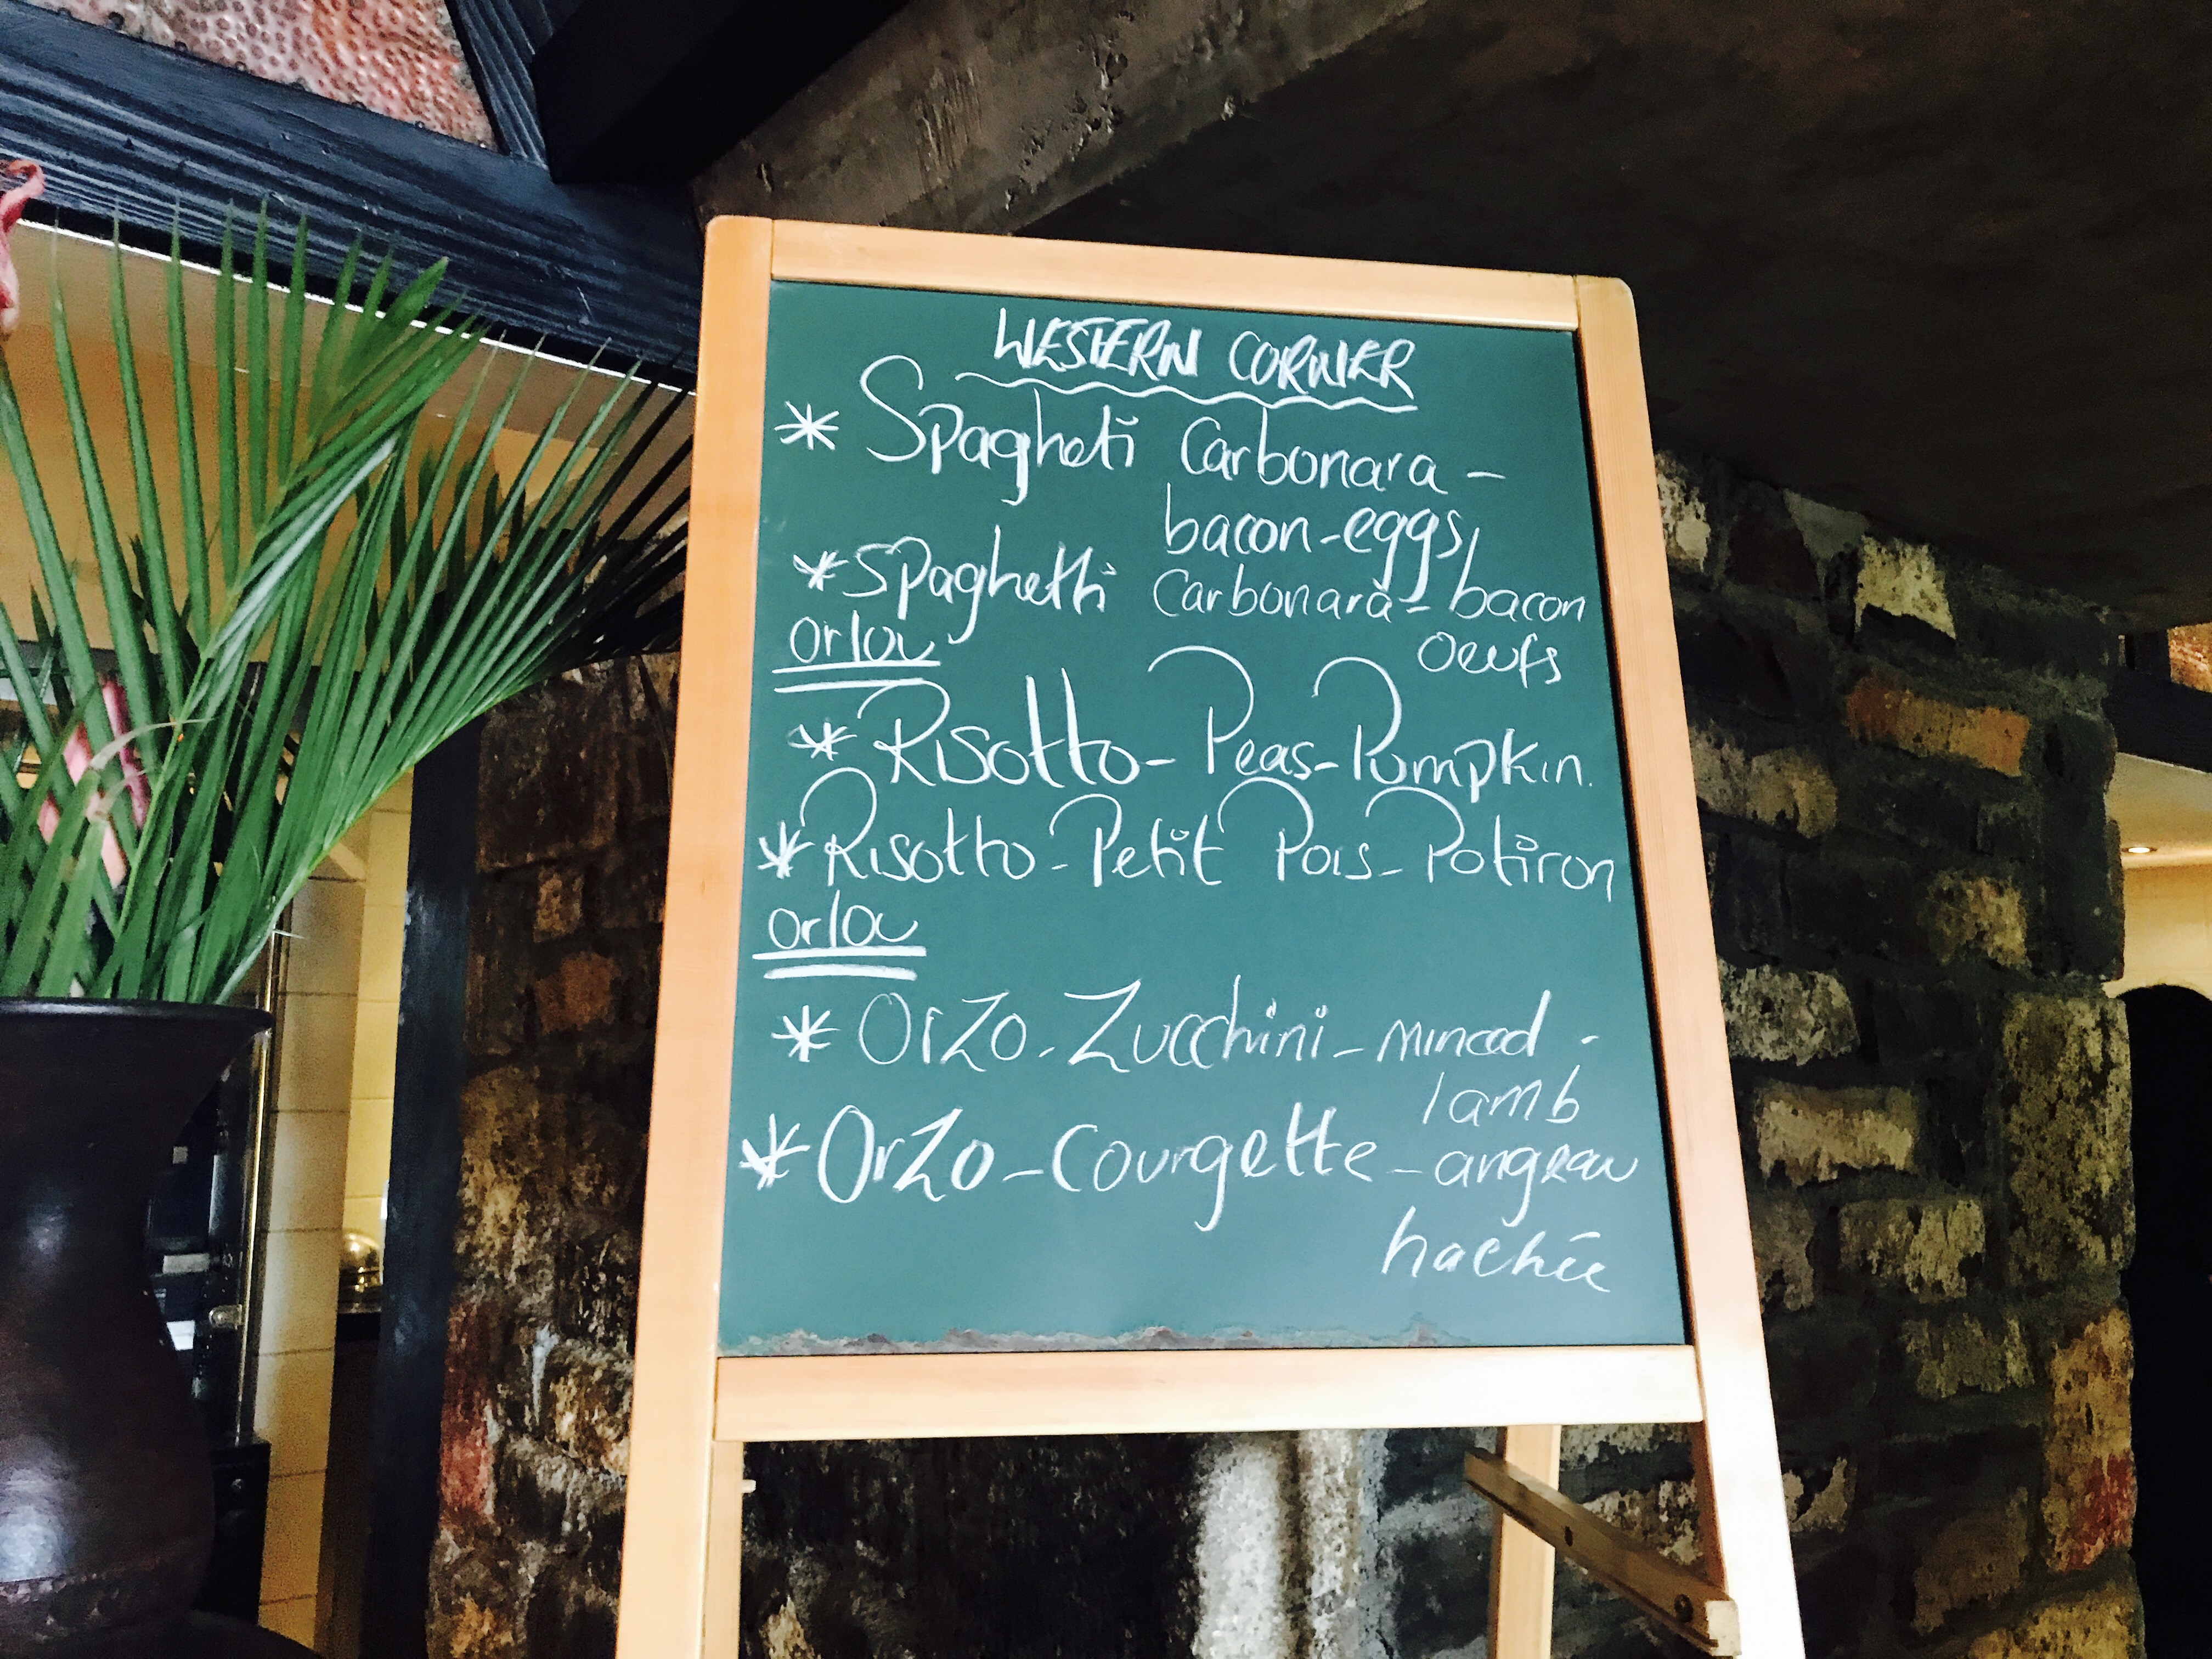 WESTERN CORNER
* Spagheti Carbonara -
bacon-eggs
* Spaghetti Carbonara - bacon
oeufs
or/ou
* Risotto - Peas - Pumpkin.
* Risotto - Petit Pois - Potiron
or/ou
* Orzo - Zucchini - minced -
lamb
* Orzo - Courgette - angeau
hachée